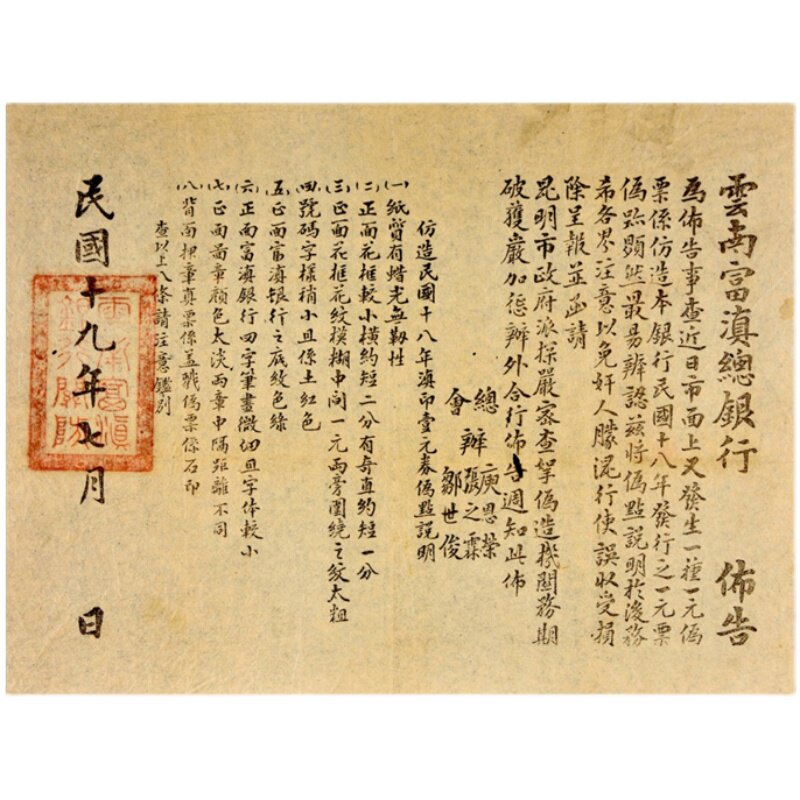 雲南富滇總銀行 佈告
為佈告事查近日市面上又發生一種一元偽
票係仿造本銀行民國十八年發行之一元票
偽點顯然最易辨認茲將偽點說明於後務
希各界注意以免奸人朦混行使誤收受損
除呈報並函請
昆明市政府派探嚴密查拏偽造機關務期
破獲嚴加懲辦外合行佈告週知此佈
總辦 庾恩榮
會 張之霖
鄒世俊
仿造民國十八年滇印壹元券偽點說明
(一)紙質有蜡光無韌性
(二)正面花框較小橫約短二分有奇直約短一分
(三)正面花框花紋模糊中間一元兩旁圍繞之紋太粗
(四)號碼字樣稍小且係土紅色
(五)正面富滇银行之底紋色綠
(六)正面富滇银行四字筆畫微細且字体較小
(七)正面圖章顏色太淡兩章中隔距離不同
(八)背面押章真票係盖戳偽票係石印
查以上八条請注意鑑別
民國十九年七月 日
雲南富滇
銀行關防